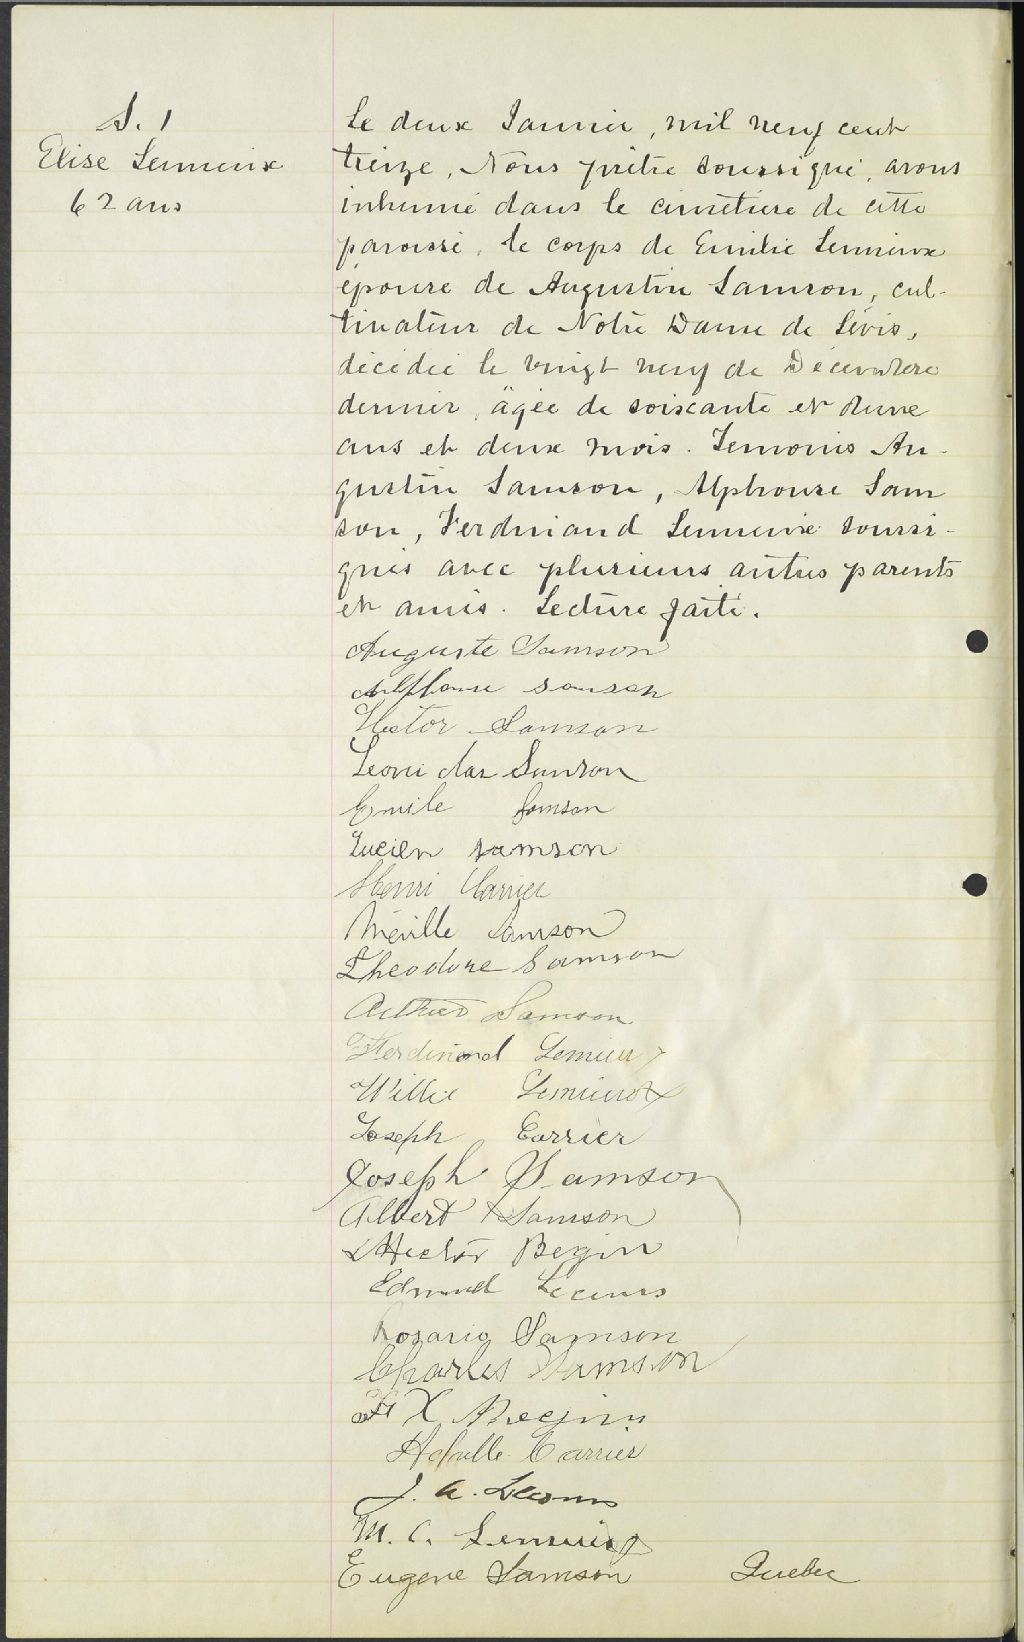 S. 1
Elise Lemieux
62 ans
Le deux Janvier, mil neuf cent
treize, Nous prêtre soussigné, avons
inhumé dans le cimetière de cette
paroisse, le corps de Emilie Lemieux
épouse de Augustin Samson, cul-
tivateur de Notre Dame de Lévis,
décédée le vingt neuf de Décembre
dernier, âgée de soixante et
ans et deux mois. Temoins Au-
gustin Samson, Alphonse Sam
son, Ferdinand Lemieux soussi-
gnés avec plusieurs autres parents
et amis. Lecture faite.
Auguste Samson
Alphonse Samson
Hector Samson
Leonidas Samson
Emile Samson
Lucien Samson
Henri Carrier
Méville Samson
Theodore Samson
Arthur Samson
Ferdinand Lemieux
Willie Lemieux
Joseph Carrier
Joseph Samson
Albert Samson
Hector Begin
Edmond Lecours
Rosario Samson
Charles Samson
F X Begin
Achille Carrier
J. A. Lecours
M. C. Lemieux
Eugene Samson Quebec